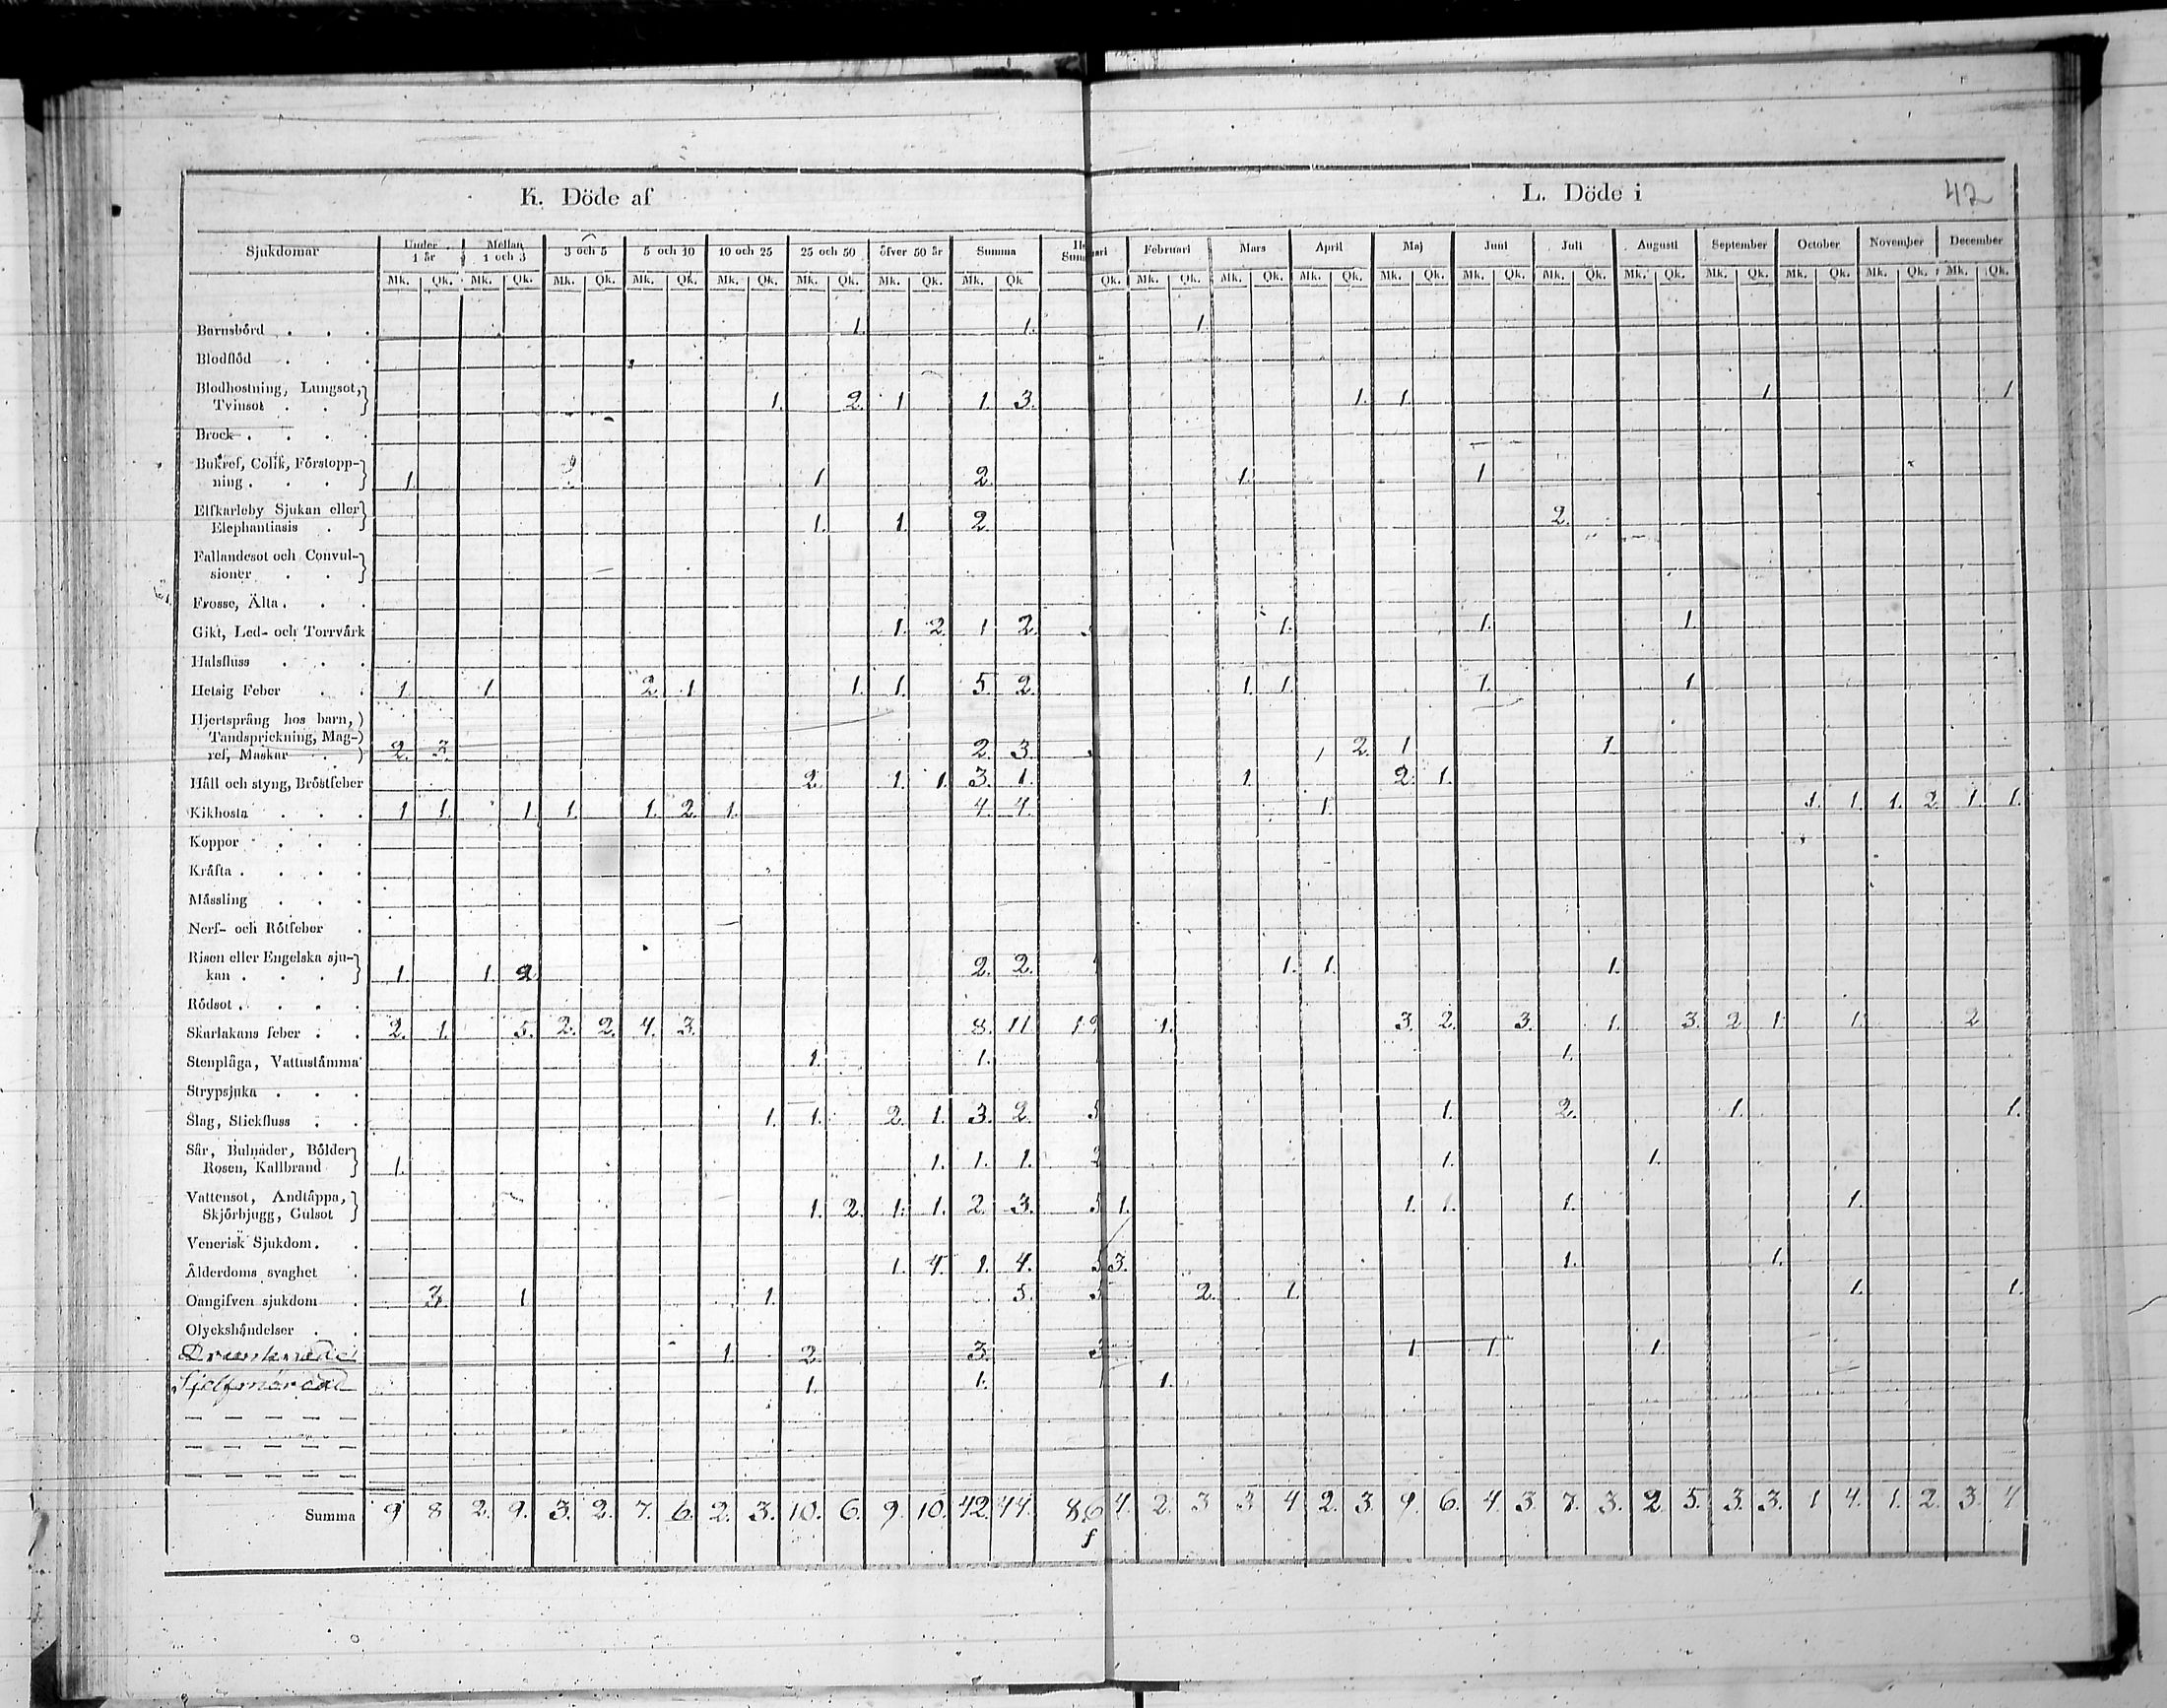 K. Döde af L. Döde i 42
Sjukdomar Under 1 år Mellan 1 och 3 3 och 5 5 och 10 10 och 25 25 och 50 öfver 50 år Summa Februari Mars April Maj Juni Juli Augusti September October November December
Mk. Qk. Mk. Qk. Mk. Qk. Mk. Qk. Mk. Qk. Mk. Qk. Mk. Qk. Mk. Qk Qk. Mk. Qk. Mk. Qk. Mk. Qk. Mk. Qk. Mk. Qk. Mk. Qk. Mk. Qk. Mk. Qk. Mk. Qk. Mk. Qk. Mk. Qk.
Barnsbörd . . . 1. 1. 1.
Blodflöd . . .
Blodhostning, Lungsot,
Tvinsot . . 1. 2. 1 1. 3. 1. 1. 1 1
Brock . . . .
Bukref, Colik, Förstopp-
ning . . . 1. 1 2 1. 1
Elfkarleby Sjukan eller
Elephantiasis . 1. 1. 2 2.
Fallandesot och Convul-
sioner . .
Frosse, Älta . . .
Gikt, Led- och Torrvärk 1. 2 1 2. 1. 1. 1.
Halsfluss . . .
Hetsig Feber . . 1. 1 2. 1 1. 1. 5. 2. 1. 1. 1. 1
Hjertsprång hos barn,
Tandsprickning, Mag-
ref, Maskar . 2. 3. 2. 3. 2. 1 1.
Håll och styng, Bröstfeber 2. 1. 1. 3. 1. 1. 2. 1.
Kikhosta . . . 1 1. 1. 1. 1. 2. 1. 4. 4. 1. 1. 1. 1. 2. 1. 1.
Koppor . . .
Kräfta . . . .
Mässling . . .
Nerf- och Rötfeber .
Risen eller Engelska sju-
kan . . . 1. 1. 2 2. 2. 1. 1. 1.
Rödsot . . . .
Skarlakans feber . . 2. 1. 5. 2. 2. 4. 3. 8. 11 1. 3. 2. 3. 1. 3. 2. 1. 1. 2
Stenplåga, Vattustämma 1. 1. 1.
Strypsjuka . . .
Slag, Stickfluss . . 1. 1. 2. 1. 3. 2. 5 1. 2. 1. 1.
Sår, Bulnader, Bölder
Rosen, Kallbrand 1. 1. 1. 1. 2 1. 1.
Vattensot, Andtäppa,
Skjörbjugg, Gulsot 1. 2. 1. 1. 2. 3. 5 1. 1. 1. 1. 1.
Venerisk Sjukdom . .
Ålderdoms svaghet . 1. 4. 1. 4. 5 3. 1. 1.
Oangifven sjukdom . 3. 1 1. 5. 5 2. 1. 1. 1.
Olyckshändelser . .
Drunknade 1. 2. 3. 3 1. 1. 1.
Sjelfmördad 1. 1. 1.
Summa 9 8 2. 9. 3. 2. 7. 6. 2. 3. 10. 6. 9. 10. 42. 44. 86 4. 2. 3 3. 4. 2. 3. 9. 6. 4. 3. 7. 3. 2. 5. 3. 3. 1 4. 1. 2. 3. 4.